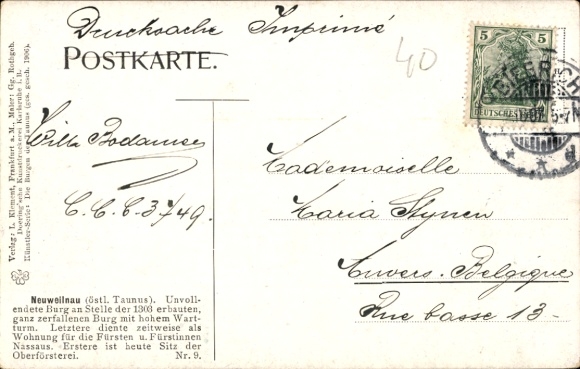 Drucksache Imprimé
POSTKARTE.
40
5 5
DEUTSCHES
Verlag: L. Klement, Frankfurt a. M., Maler: Gg. Rothgeb.
Doering'sche Kunstdruckerei Karlsruhe i. B.
Künstler-Serie: Die Burgen des Taunus (ges. gesch. 1906).
Willy Bodamse
C. C. C. 3749.
Mademoiselle
Maria Stynen
Anvers. Belgique
Rue basse 13-
Neuweilnau (östl. Taunus). Unvoll-
endete Burg an Stelle der 1303 erbauten,
ganz zerfallenen Burg mit hohem Wart-
turm. Letztere diente zeitweise als
Wohnung für die Fürsten u. Fürstinnen
Nassaus. Erstere ist heute Sitz der
Oberförsterei. Nr. 9.